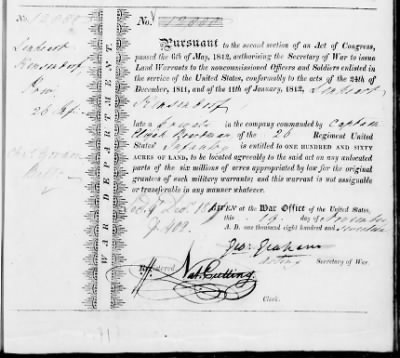 No.
Pursuant to the second section of an Act of Congress,
passed the 6th of May, 1812, authorising the Secretary of War to issue
Land Warrants to the noncommissioned Officers and Soldiers enlisted in
the service of the United States, conformably to the acts of the 24th of
December, 1811, and of the 11th of January, 1812,
late a Private in the company commanded by Captain
Elijah Boardman of the 26 Regiment United
States' Infantry is entitled to ONE HUNDRED AND SIXTY
ACRES OF LAND, to be located agreeably to the said act on any unlocated
parts of the six millions of acres appropriated by law for the original
grantees of such military warrants; and this warrant is not assignable
or transferable in any manner whatever.
GIVEN at the War Office of the United States,
this 19 day of November
A. D. one thousand eight hundred and seventeen
Geo: Graham
Acting Secretary of War.
Registered Nat: Cutting.
Clerk.
WAR DEPARTMENT.
26 Inf.